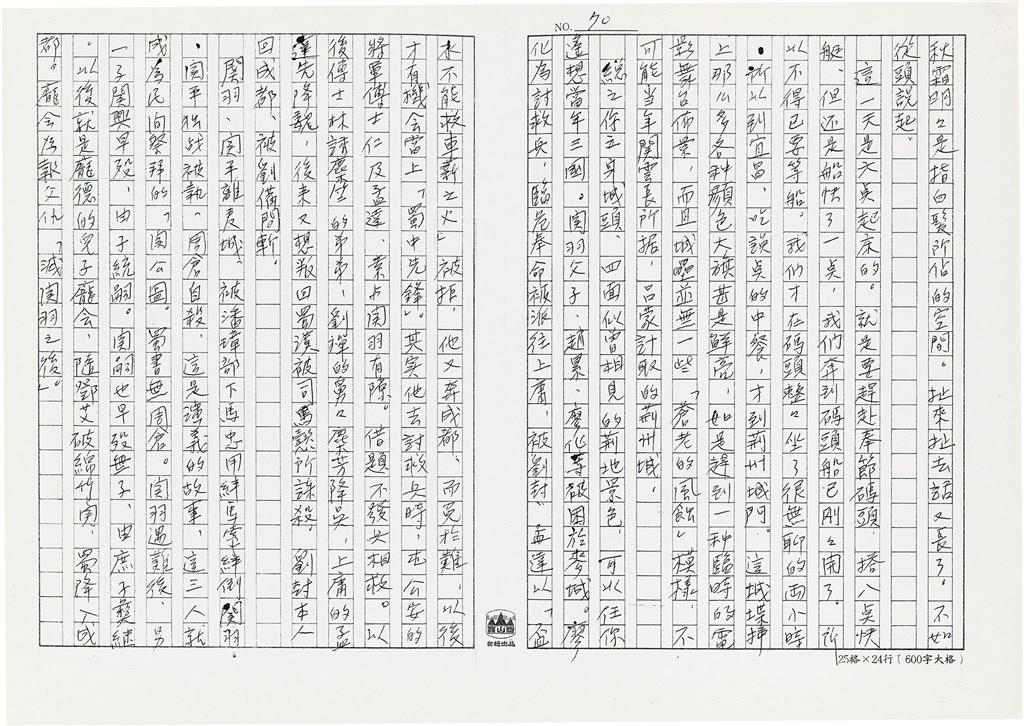 NO. 70
秋霜明々是指白髮所佔的空間。扯來扯去話又長了。不如
從頭說起。
這一天是六点起床的。就是要趕赴奉節碼頭，搭八点快
艇。但还是船快了一点，我們奔到碼頭船已剛々開了。所
以不得已要等船。我們才在碼頭整々坐了很無聊的两小時
。所以到宜昌，吃誤点的中餐，才到荊州城門。這城堞揷
上那么多各种顏色大旗甚是鮮亮，如是趕到一种臨時的電
影舞台佈景，而且城壘並無一些「蒼老的風蝕」模樣，不
可能当年関雲長所据，呂蒙計取的荊州城，
總之你立身城頭，四面似曾相見的荊地景色，可以任你
遐想當年三國。関羽父子、趙累、廖化等被困於麥城。廖
化為討救兵，臨危奉命被派往上庸，被劉封、孟達以「盃
水不能救車薪之火」被拒，他又奔成都，而免於難，以後
才有機会當上「蜀中先鋒」。其实他去討救兵時，屯公安的
將軍傅士仁及孟達，素与関羽有隙。借題不發兵相救。以
後傅士林誘麋竺的弟弟，劉禪的舅々麋芳降吳，上庸的孟
達先降魏，後来又想叛回蜀漢被司馬懿所誅殺。劉封本人
回成都，被劉備問斬。
関羽、関平離麦城，被潘璋部下馬忠用絆馬索絆倒関羽
，関平独战被執，周倉自殺，這是演義的故事，這三人就
成為民间祭拜的「関公圖」。蜀書無周倉。関羽遇難後，另
一子関興早殁，由子統嗣。関嗣也早殁無子，由庶子彝継
。以後就是龐德的兒子龐会，隨鄧艾破綿竹関，蜀降入成
都。龐会為報父仇，「滅関羽之後」。
25格×24行（600字大格）